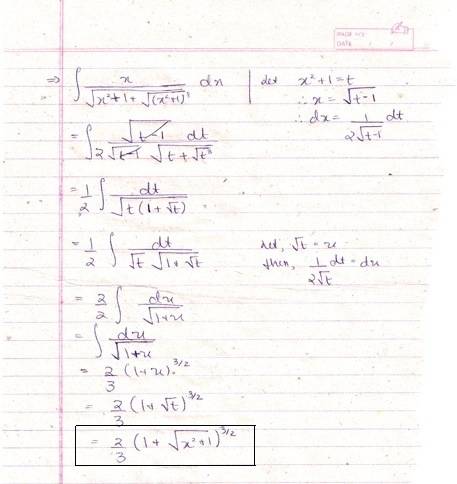 PAGE NO.
DATE / /
⇒ ∫ x / √(x²+1+√(x²+1)³) dx | Let x²+1=t
∴ x = √(t-1)
∴ dx = 1/(2√(t-1)) dt
= ∫ √(t-1) dt / (2√(t-1) √(t+√t³))
= 1/2 ∫ dt / √(t(1+√t))
= 1/2 ∫ dt / (√t √(1+√t)) Let, √t = u
then, 1/(2√t) dt = du
= 2/2 ∫ du / √(1+u)
= ∫ du / √(1+u)
= 2/3 (1+u)^3/2
= 2/3 (1+√t)^3/2
= 2/3 (1+√(x²+1))^3/2